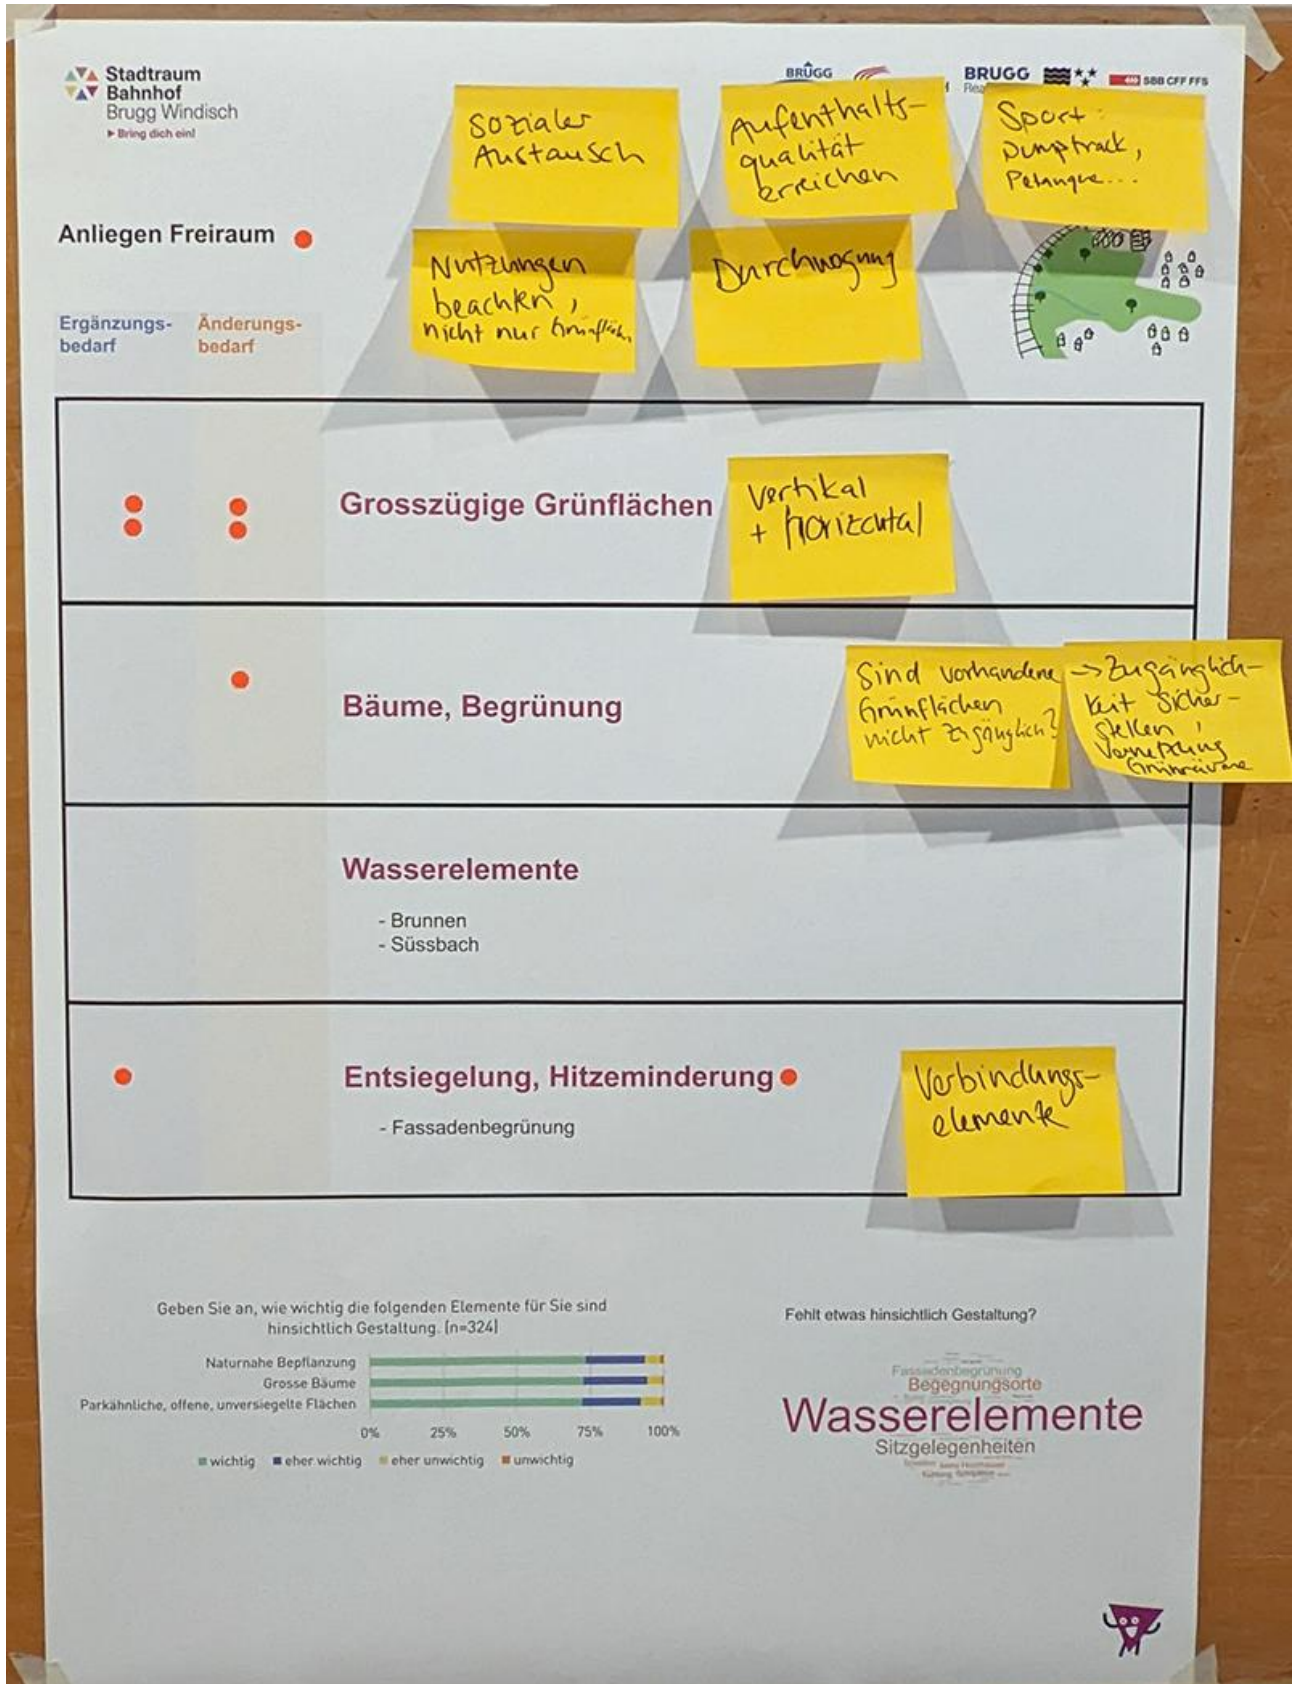 Stadtraum
Bahnhof
Brugg Windisch
▸ Bring dich ein!
BRUGG
BRUGG
SBB CFF FFS
Sozialer
Austausch
Aufenthalts-
qualität
erreichen
Sport:
Pumptrack,
Petanque...
Anliegen Freiraum
Nutzungen
beachten,
nicht nur Grünfläch.
Durchwegung
Ergänzungs-
bedarf
Änderungs-
bedarf
Grosszügige Grünflächen
vertikal
+ horizontal
Bäume, Begrünung
Sind vorhandene
Grünflächen
nicht zugänglich?
→ Zugänglich-
keit sicher-
stellen,
Vernetzung
Grünräume
Wasserelemente
- Brunnen
- Süssbach
Entsiegelung, Hitzeminderung
- Fassadenbegrünung
Verbindungs-
elemente
Geben Sie an, wie wichtig die folgenden Elemente für Sie sind
hinsichtlich Gestaltung. (n=324)
Naturnahe Bepflanzung
Grosse Bäume
Parkähnliche, offene, unversiegelte Flächen
0% 25% 50% 75% 100%
wichtig eher wichtig eher unwichtig unwichtig
Fehlt etwas hinsichtlich Gestaltung?
Fassadenbegrünung
Begegnungsorte
Wasserelemente
Sitzgelegenheiten